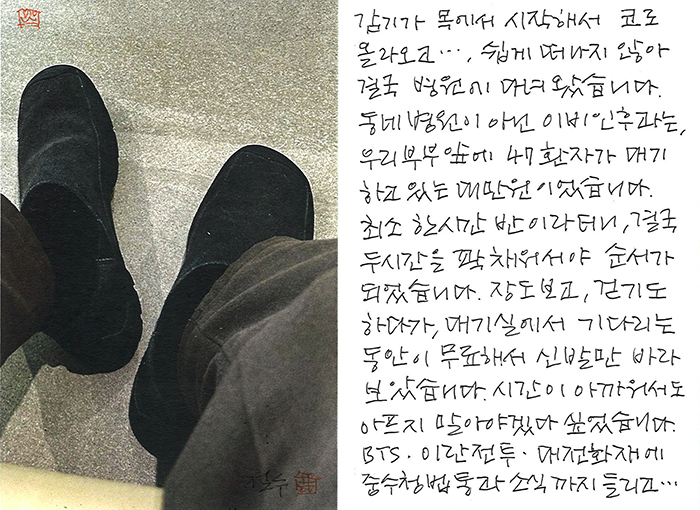 감기가 목에서 시작해서 코로
올라오고…, 쉽게 떠나지 않아
결국 병원에 다녀왔습니다.
동네병원이 아닌 이비인후과는,
우리부부앞에 47환자가 대기
하고 있는 대만원이었습니다.
최소 한시간 반이라더니, 결국
두시간을 꽉 채워서야 순서가
되었습니다. 장도보고, 걷기도
하다가, 대기실에서 기다리는
동안이 무료해서 신발만 바라
보았습니다. 시간이 아까워서도
아프지 말아야겠다 싶었습니다.
BTS·이란전투·대전화재에
중수청법통과 소식까지 들리고…